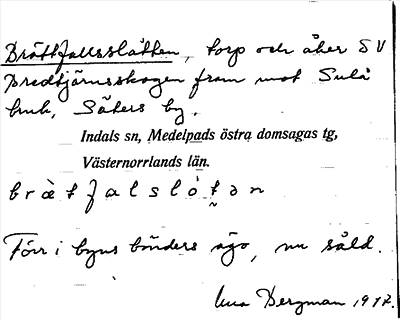 Bråttfallsslåtten, torp och åker SV
Bredtjärnsskogen fram mot Sulå
bruk, Säters by.
Indals sn, Medelpads östra domsagas tg,
Västernorrlands län.
b r å t f a l s l ò t ə n
Förr i byns bönders ägo, nu såld.
Bergman 1917.